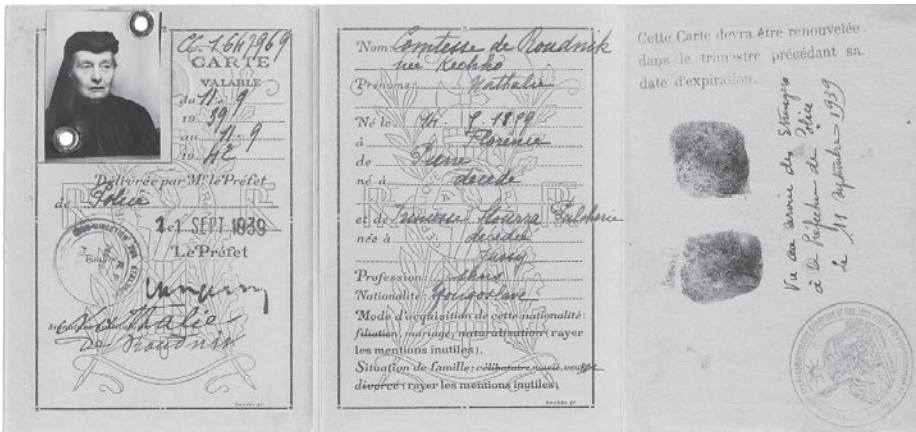 CE. 1.647969
CARTE
VALABLE
du 11-9
1939
au 11-9
1942
Délivrée par Mr le Préfet
de Police
11 SEPT 1939
Le Préfet
Nathalie
de Roudnik
Nom: Comtesse de Roudnik
née Kechko
Prénoms: Nathalie
Né le 1859
à Florence
de Pierre
né à décédé
et de Princesse Stourza Pulcherie
née à décédée
Jassy
Profession: sans
Nationalité: Yougoslave
Mode d'acquisition de cette nationalité:
filiation, mariage, naturalisation (rayer
les mentions inutiles).
Situation de famille: célibataire, marié, veuf,
divorcé (rayer les mentions inutiles)
Cette Carte devra être renouvelée
dans le trimestre précédant sa
date d'expiration.
Vu au service des Etrangers
à la Préfecture de Police
le 11 septembre 1939